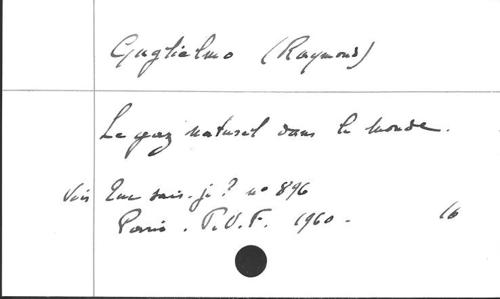 Guglielmo (Raymond)
Le gaz naturel dans le monde.
Voir Que sais-je? n° 896
Paris. P.U.F. 1960. 16